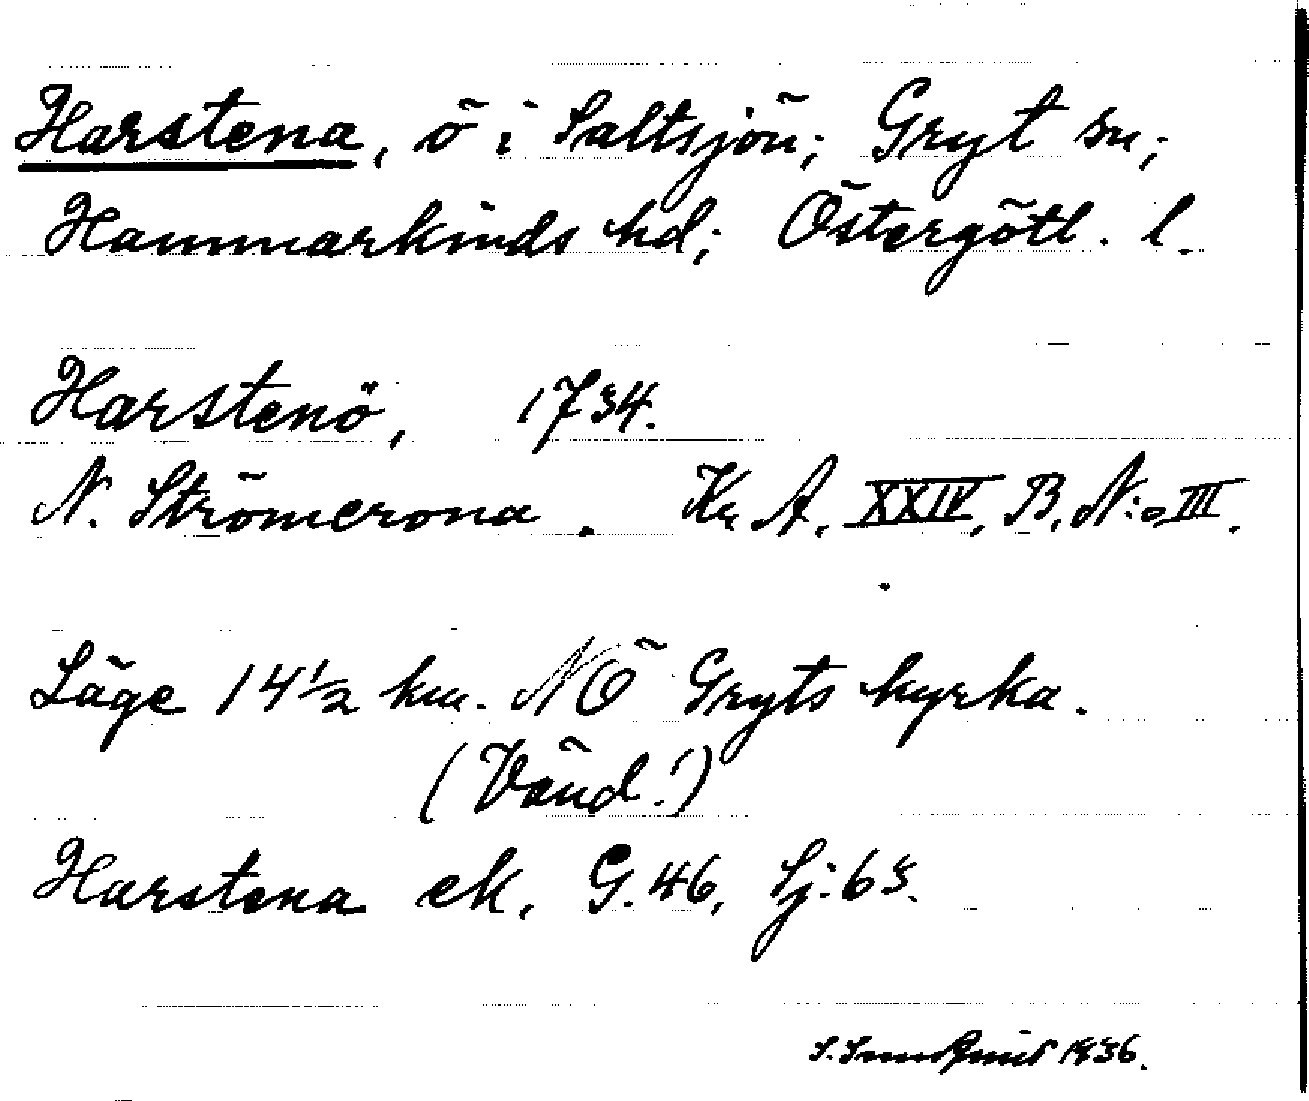 Harstena, ö i Saltsjön; Gryt sn;
Hammarkinds hd; Östergötl. l.
Harstenö, 1734.
N. Strömcrona. Kr. A. XXIV, B. N:o III.
Läge 14 1/2 km. NÖ Gryts kyrka.
(Vänd!)
Harstena ek. G. 46, Sj: 63.
1936.